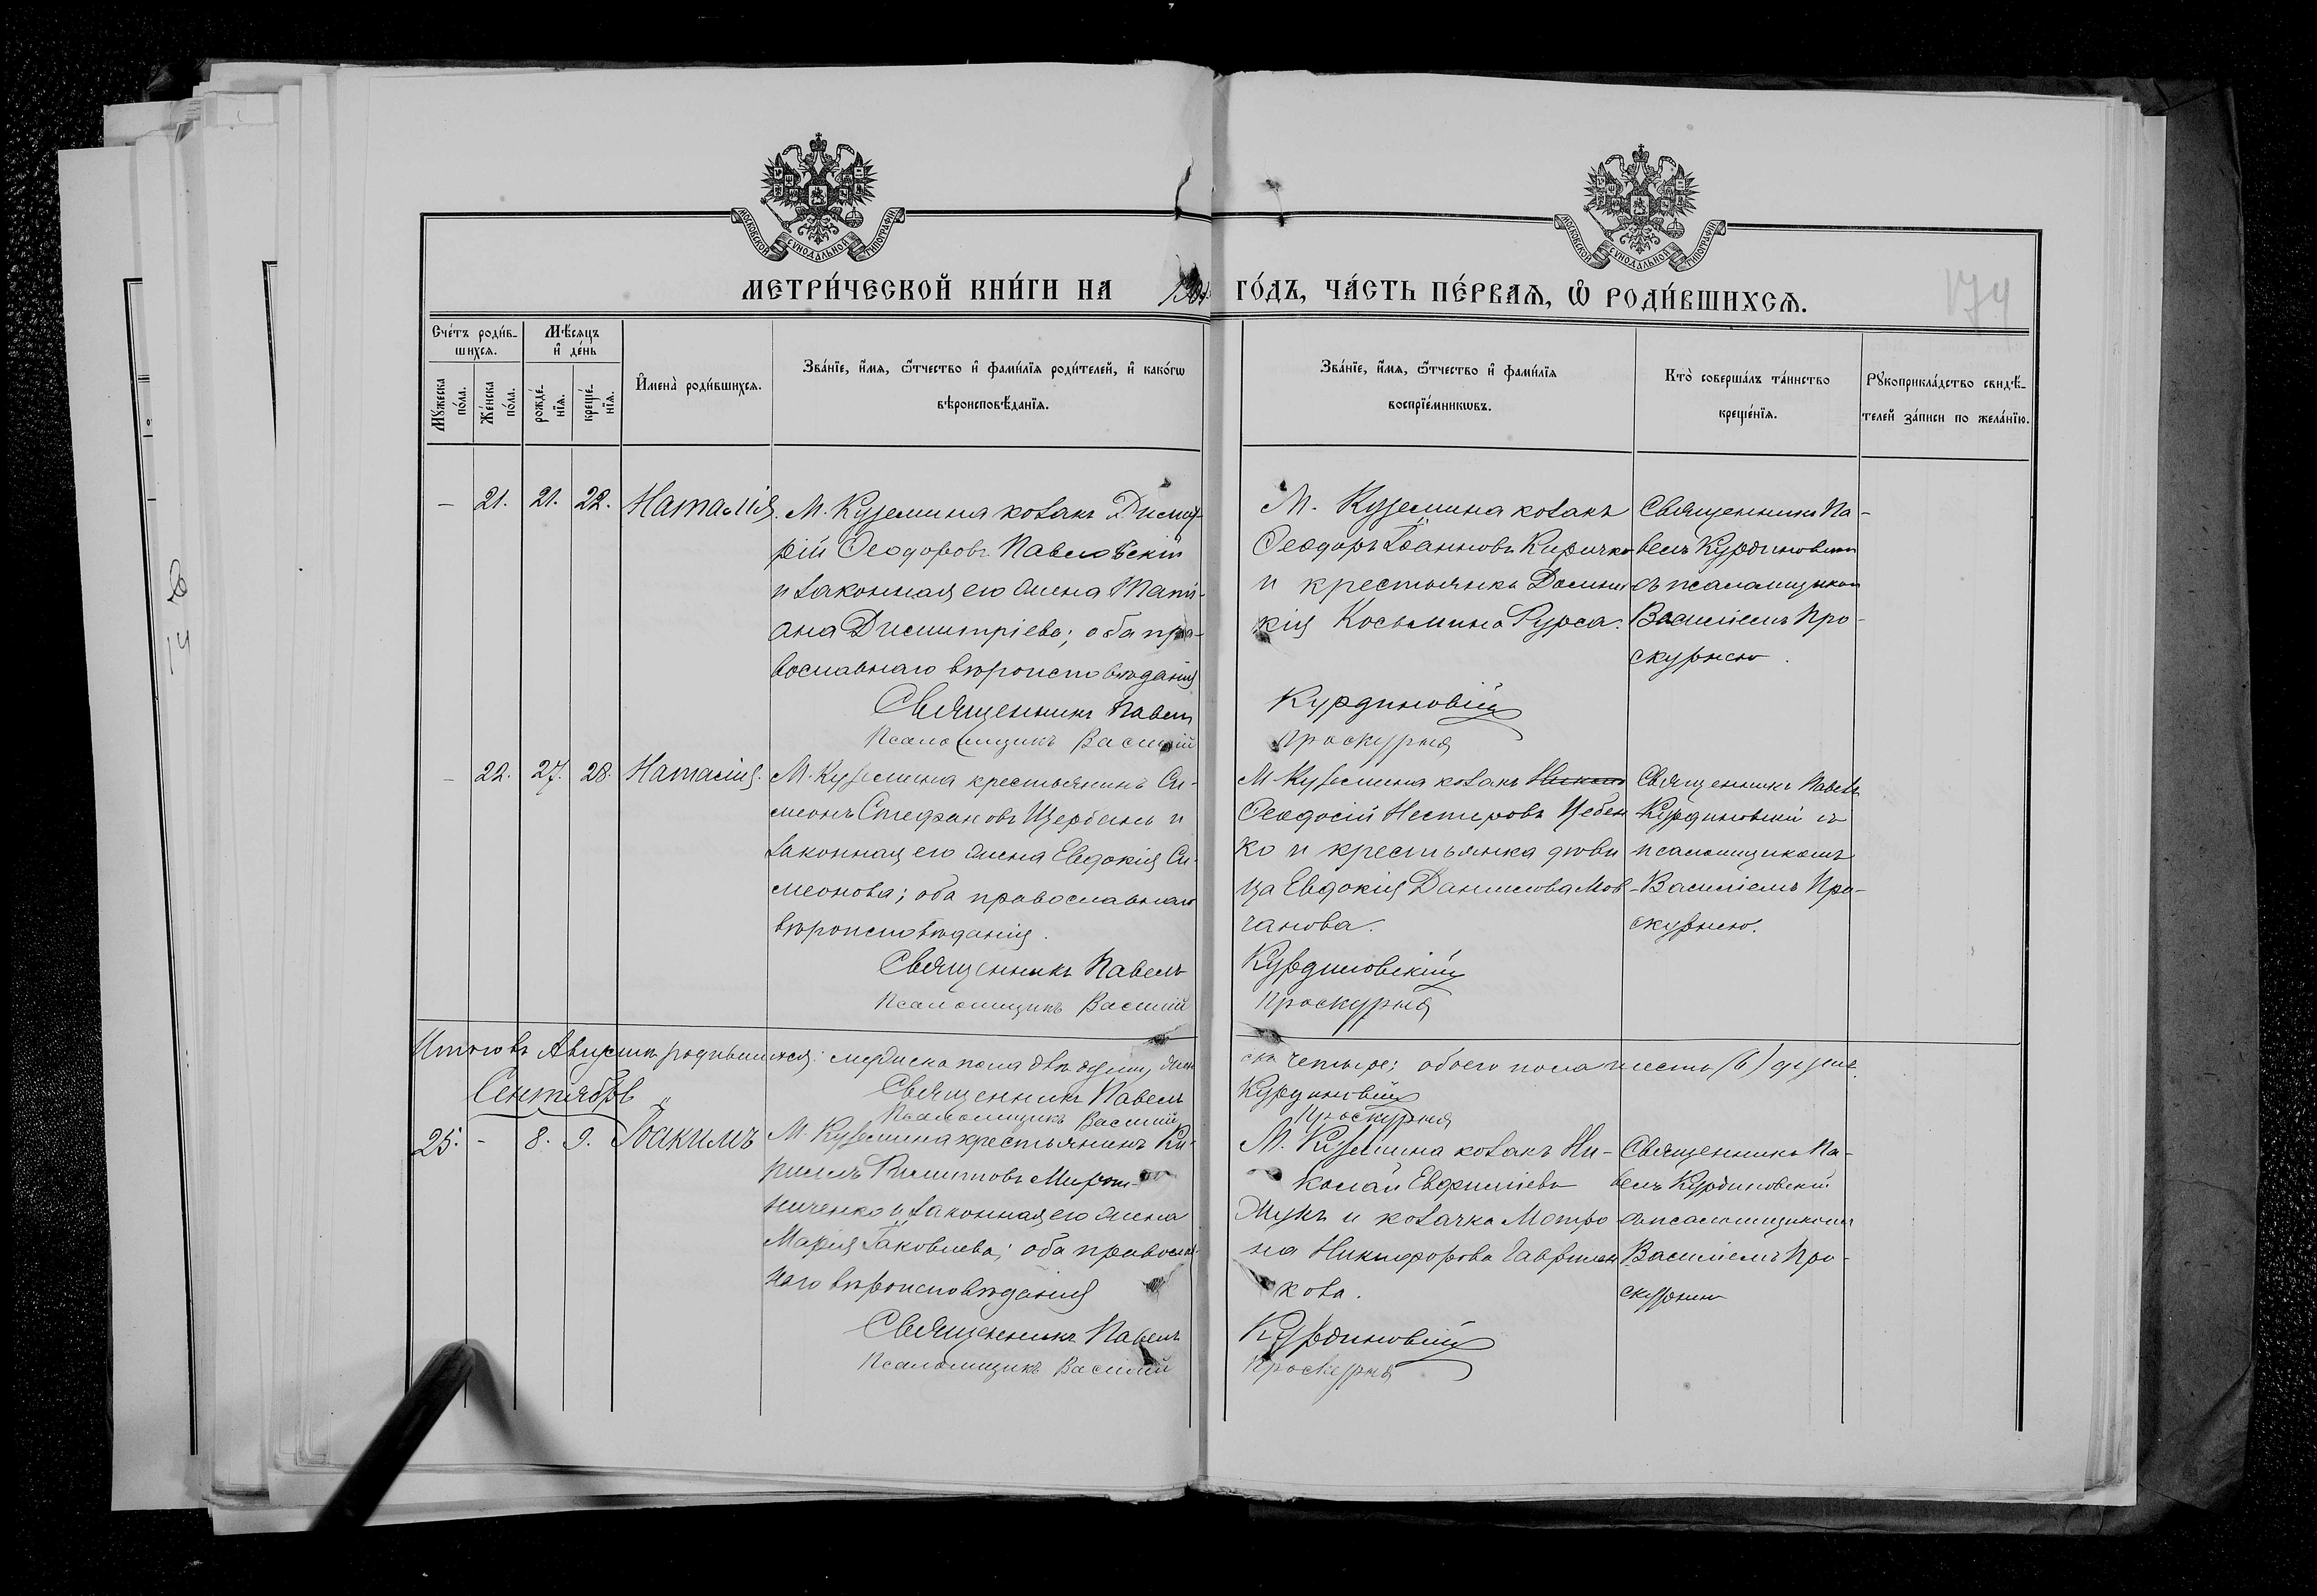 МОСКОВСКОЙ СѴНОДАЛЬНОЙ ТИПОГРАФІИ
МОСКОВСКОЙ СѴНОДАЛЬНОЙ ТИПОГРАФІИ
МЕТРИ́ЧЕСКОЙ КНИ́ГИ НА ГО́ДЪ, ЧА́СТЬ ПЕ́РВАЯ, Ѡ РОДИ́ВШИХСЯ.
174
Сче́тъ роди́в-
шихся.
Мѣ́сяцъ
и҆ де́нь
Мꙋ́жеска
по́ла.
Же́нска
по́ла.
рожде́-
нїя.
креще́-
нїя.
И҆мена̀ роди́вшихся.
Зва́нїе, и҆́мя, ѻ҆́тчество и҆ фами́лїя роди́телей, и҆ како́гѡ
вѣроисповѣ́данїя.
Зва́нїе, и҆́мя, ѻ҆́тчество и҆ фами́лїя
воспрїе́мникѡвъ.
Кто̀ соверша́лъ та́инство
креще́нїя.
Рꙋкоприкла́дство свидѣ́-
телей за́писи по жела́нїю.
– 21. 21. 22. Наталія.
М. Куземина козакъ Димит-
рій Ѳеодоровъ Павловскій
и законная его жена Тати-
ана Димитріева; оба пра-
вославнаго вѣроисповѣданія
Священникъ Павелъ
Псаломщикъ Василій
М. Куземина козакъ
Ѳеодоръ Іоанновъ Киричко
и крестьянка Домни-
кія Косьмина Гурса.
Курдиновскій
Проскурня
Священникъ Па-
велъ Курдиновскій
съ псаломщикомъ
Василіемъ Про-
скурнею.
– 22. 27. 28. Наталія.
М. Куземина крестьянинъ Си-
меонъ Стефановъ Щербань и
законная его жена Евдокія Си-
меонова; оба православнаго
вѣроисповѣданія.
Священникъ Павелъ
Псаломщикъ Василій
М. Куземина козакъ
Ѳеодосій Нестеровъ Цебен
ко и крестьянка дѣви
ца Евдокія Данилова Мов-
чанова.
Курдиновскій
Проскурня
Священникъ Павелъ
Курдиновскій съ
псаломщикомъ
Василіемъ Про-
скурнею.
Итого въ Августѣ родившихся: мужеска пола двѣ души, жен
ска четыре; обоего пола шесть (6) душъ.
Священникъ Павелъ Курдиновскій
Псаломщикъ Василій Проскурня
Сентябрь
25. – 8. 9. Іоакимъ
М. Куземина крестьянинъ Ки-
риллъ Филиповъ Мирош-
ниченко и законная его жена
Марія Іаковлева; оба православ-
наго вѣроисповѣданія
Священникъ Павелъ
Псаломщикъ Василій
М. Куземина козакъ Ни-
колай Евфиміевъ
Жукъ и козачка Матро
на Никифорова Гаврилен
кова.
Курдиновскій
Проскурня
Священникъ Па-
велъ Курдиновскій
съ псаломщикомъ
Василіемъ Про-
скурнею